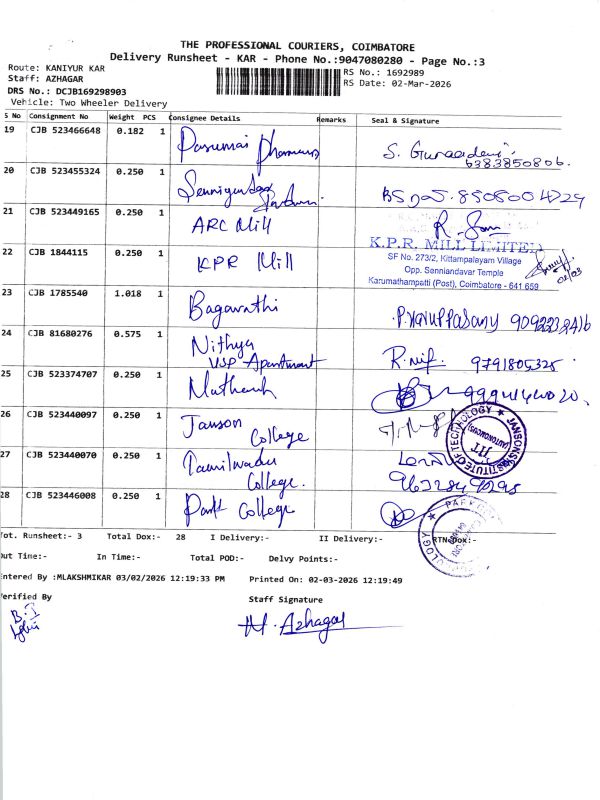 THE PROFESSIONAL COURIERS, COIMBATORE
Delivery Runsheet - KAR - Phone No.:9047080280 - Page No.:3
Route: KANIYUR KAR
Staff: AZHAGAR
DRS No.: DCJB169298903
Vehicle: Two Wheeler Delivery
RS No.: 1692989
RS Date: 02-Mar-2026
S No Consignment No Weight PCS Consignee Details Remarks Seal & Signature
19 CJB 523466648 0.182 1 6383850806.
20 CJB 523455324 0.250 1
21 CJB 523449165 0.250 1 ARC Mill
22 CJB 1844115 0.250 1 KPR Mill
K.P.R. MILL LIMITED
SF No. 273/2, Kittampalayam Village
Opp. Senniandavar Temple
Karumathampatti (Post), Coimbatore - 641 659
02/03
23 CJB 1785540 1.018 1 Bagavathi
24 CJB 81680276 0.575 1 Nithya
Apartment 9791805325
25 CJB 523374707 0.250 1
26 CJB 523440097 0.250 1 Janson
College
JANSONS INSTITUTE OF TECHNOLOGY
(AUTONOMOUS)
JIT
27 CJB 523440070 0.250 1 Tamilnadu
College.
28 CJB 523446008 0.250 1 Park College
Tot. Runsheet:- 3 Total Dox:- 28 I Delivery:- II Delivery:- RTN Dox:-
Out Time:- In Time:- Total POD:- Delvy Points:-
Entered By :MLAKSHMIKAR 03/02/2026 12:19:33 PM Printed On: 02-03-2026 12:19:49
Verified By Staff Signature
M. Azhagar